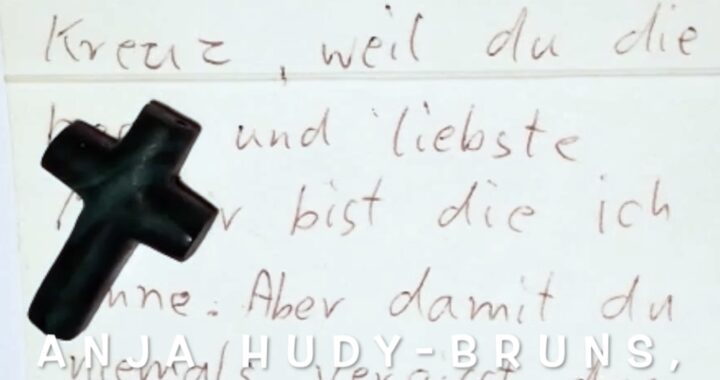 Kreuz, weil du die
und liebste
bist die ich
Aber damit du
niemals vergisst
ANJA HUDY-BRUNS,